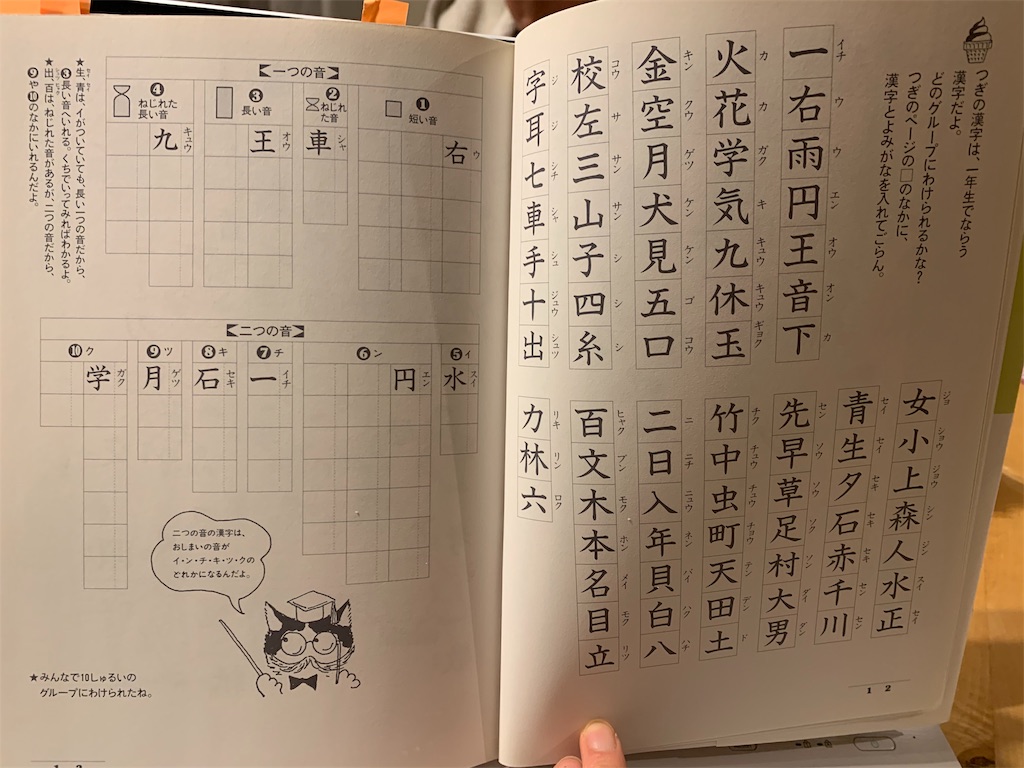 つぎの漢字は、一年生でならう
漢字だよ。
どのグループにわけられるかな?
つぎのページの□のなかに、
漢字とよみがなを入れてごらん。
イチ ウ ウ エン オウ オン カ
一右雨円王音下
カ カ ガク キ キュウ キュウ ギョク
火花学気九休玉
キン クウ ゲツ ケン ケン ゴ コウ
金空月犬見五口
コウ サ サン サン シ シ シ
校左三山子四糸
ジ ジ シチ シャ シュ ジュウ シュツ
字耳七車手十出
ジョ ショウ ジョウ シン ジン スイ セイ
女小上森人水正
セイ セイ セキ セキ セキ セン セン
青生夕石赤千川
セン ソウ ソウ ソク ソン ダイ ダン
先早草足村大男
チク チュウ チュウ チョウ テン デン ド
竹中虫町天田土
ニ ニチ ニュウ ネン バイ ハク ハチ
二日入年貝白八
ヒャク ブン モク ホン メイ モク リツ
百文木本名目立
リキ リン ロク
力林六
12
【一つの音】
❶短い音
右 ウ
❷ねじれた音
車 シャ
❸長い音
王 オウ
❹ねじれた長い音
九 キュウ
★生、青は、イがついていても、長い一つの音だから、
❸長い音へいれる。くちでいってみればわかるよ。
★出、百は、ねじれた音があるが、二つの音だから、
❾や❿のなかにいれるんだよ。
【二つの音】
❺イ
水 スイ
❻ン
円 エン
❼チ
一 イチ
❽キ
石 セキ
❾ツ
月 ゲツ
❿ク
学 ガク
二つの音の漢字は、
おしまいの音が
イ・ン・チ・キ・ツ・クの
どれかになるんだよ。
★みんなで10しゅるいの
グループにわけられたね。
13